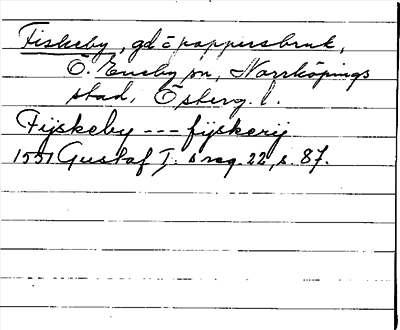 Fiskeby, gd o pappersbruk,
Ö. Eneby sn, Norrköpings
stad, Österg. l.
Fijskeby --- fijskerij
1551 Gustaf I:s reg. 22, s. 87.